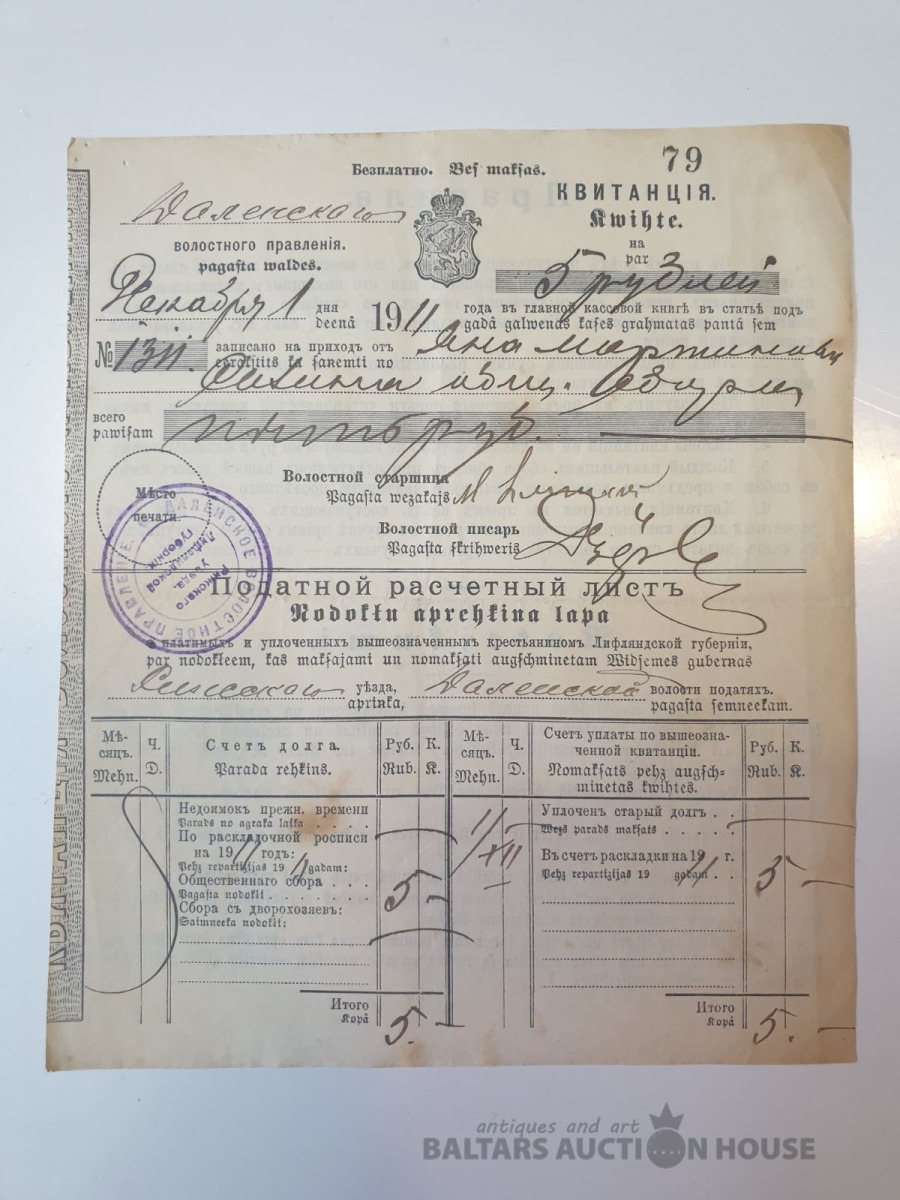 79
Безплатно. Bes maksas.
КВИТАНЦІЯ.
Kwihte.
Даленскаго
волостного правленія.
pagasta waldes.
на
par
5 рублей
Декабря 1 дня 1911 года въ главной кассовой книгѣ въ статьѣ подъ
deenâ gadâ galwenas kases grahmatas pantâ sem
№ 1311. записано на приходъ отъ Яна Мартинова
eerakstits kâ saņemti no
всего
pawisam
пять руб.
Волостной старшина
Pagasta wezakajs
Мѣсто
печати.
Волостной писарь
Pagasta skrihweris
ДАЛЕНСКОЕ ВОЛОСТНОЕ ПРАВЛЕНІЕ.
Рижскаго
уѣзда,
Лифляндской
губерніи
Податной расчетный листъ
Nodokłu aprehķina lapa
платимыхъ и уплоченныхъ вышеозначеннымъ крестьяниномъ Лифляндской губерніи,
par nodokleem, kas maksajami un nomaksati augschminetam Widsemes gubernas
Рижскаго уѣзда, Даленской волости податяхъ.
apriņka, pagasta semneekam.
Мѣ-
сяцъ.
Mehn.
Ч.
D.
Счетъ долга.
Parada rehķins.
Руб.
Rub.
К.
K.
Мѣ-
сяцъ.
Mehn.
Ч.
D.
Счетъ уплаты по вышеозна-
ченной квитанціи.
Nomaksats pehz augsch-
minetas kwihtes.
Руб.
Rub.
К.
K.
Недоимокъ прежн. времени
Parads no agraka laika . . . .
По раскладочной росписи
на 1911 годъ:
Pehz repartizijas 1911 gadam:
Общественнаго сбора . . . 5 -
Pagasta nodokli . . . . . .
Сбора съ дворохозяевъ:
Saimneeka nodokli:
Итого
Kopâ
5. -
1/XII
Уплоченъ старый долгъ . .
Wezs parads maksats . . . . .
Въ счетъ раскладки на 1911 г. 5 -
Pehz repartizijas 1911 gadam . .
Итого
Kopâ
5. -
antiques and art
BALTARS AUCTION HOUSE